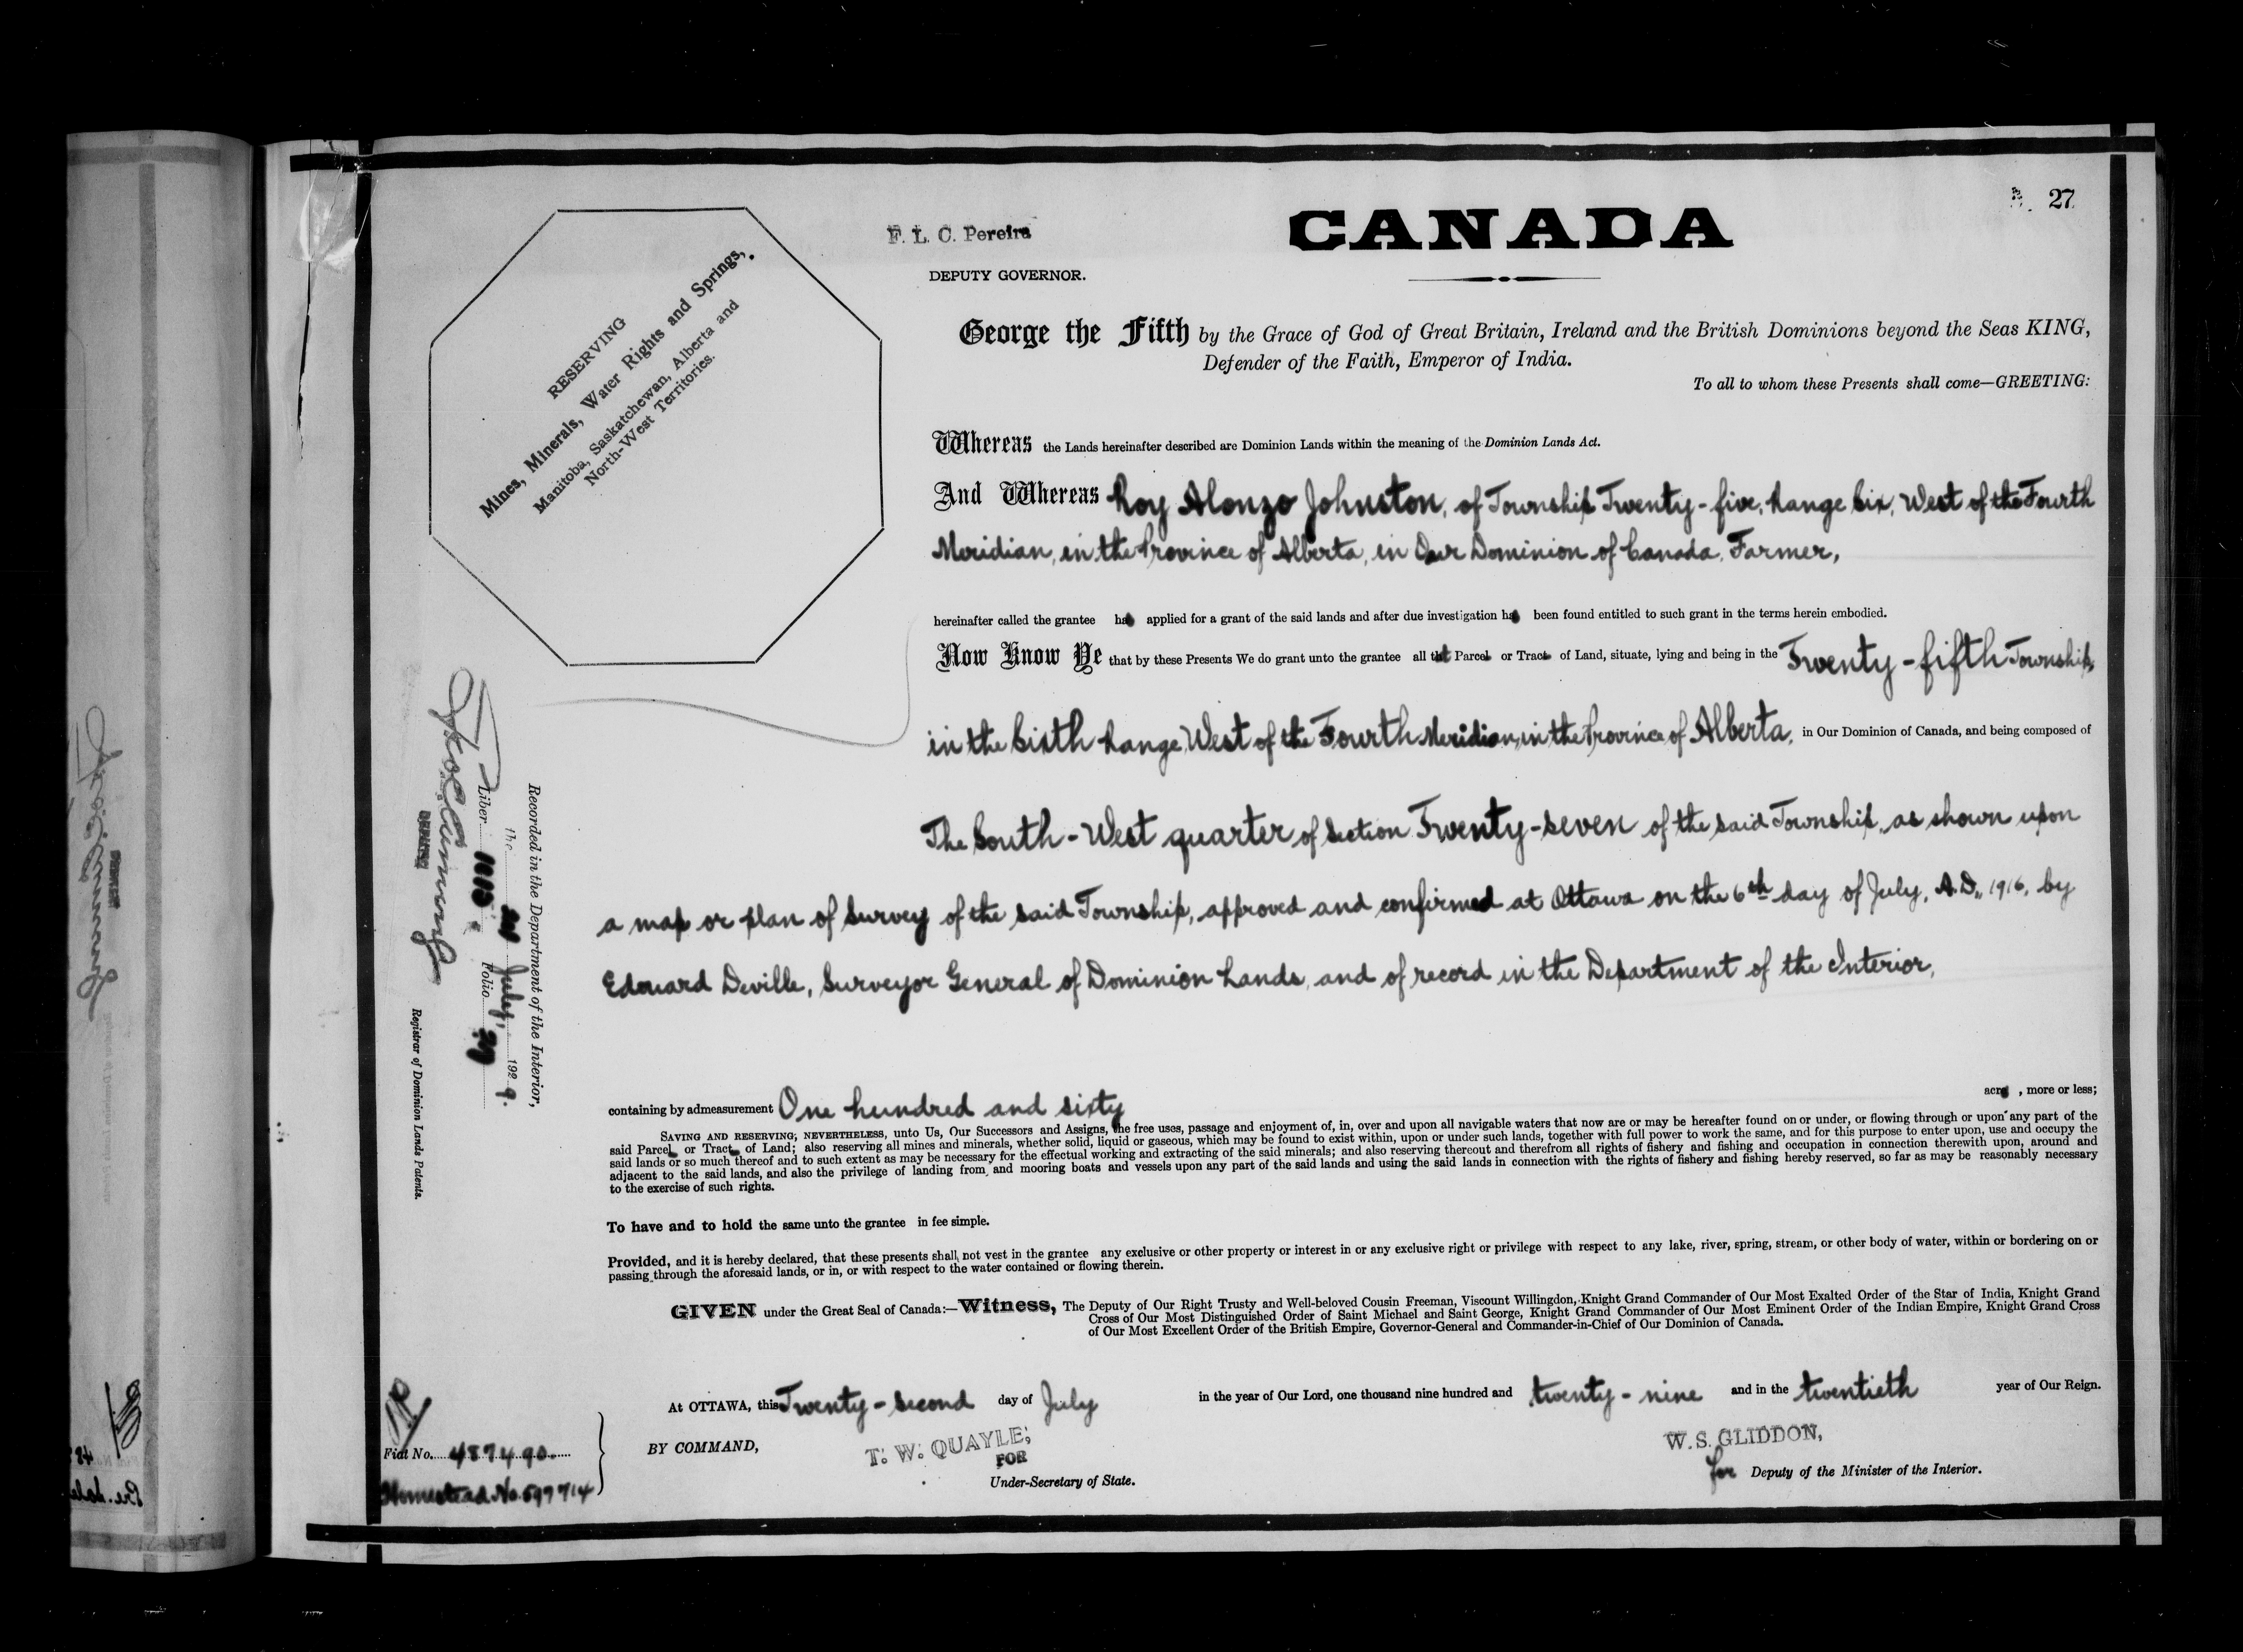 27
F. L. C. Pereira
CANADA
DEPUTY GOVERNOR.
RESERVING
Mines, Minerals, Water Rights and Springs,
Manitoba, Saskatchewan, Alberta and
North-West Territories.
George the Fifth by the Grace of God of Great Britain, Ireland and the British Dominions beyond the Seas KING,
Defender of the Faith, Emperor of India.
To all to whom these Presents shall come—GREETING:
Whereas the Lands hereinafter described are Dominion Lands within the meaning of the Dominion Lands Act.
And Whereas Roy Alonzo Johnston, of Township Twenty-five, Range Six, West of the Fourth
Meridian, in the Province of Alberta, in Our Dominion of Canada, Farmer,
hereinafter called the grantee has applied for a grant of the said lands and after due investigation has been found entitled to such grant in the terms herein embodied.
Now Know Ye that by these Presents We do grant unto the grantee all that Parcel or Tract of Land, situate, lying and being in the Twenty-fifth Township,
in the Sixth Range, West of the Fourth Meridian, in the Province of Alberta, in Our Dominion of Canada, and being composed of
The South-West quarter of Section Twenty-seven of the said Township, as shown upon
a map or plan of Survey of the said Township, approved and confirmed at Ottawa on the 6th day of July, A.D. 1916, by
Edouard Deville, Surveyor General of Dominion Lands, and of record in the Department of the Interior,
containing by admeasurement One hundred and sixty acres, more or less;
SAVING AND RESERVING, NEVERTHELESS, unto Us, Our Successors and Assigns, the free uses, passage and enjoyment of, in, over and upon all navigable waters that now are or may be hereafter found on or under, or flowing through or upon any part of the
said Parcel or Tract of Land; also reserving all mines and minerals, whether solid, liquid or gaseous, which may be found to exist within, upon or under such lands, together with full power to work the same, and for this purpose to enter upon, use and occupy the
said lands or so much thereof and to such extent as may be necessary for the effectual working and extracting of the said minerals; and also reserving thereout and therefrom all rights of fishery and fishing and occupation in connection therewith upon, around and
adjacent to the said lands, and also the privilege of landing from and mooring boats and vessels upon any part of the said lands and using the said lands in connection with the rights of fishery and fishing hereby reserved, so far as may be reasonably necessary
to the exercise of such rights.
To have and to hold the same unto the grantee in fee simple.
Provided, and it is hereby declared, that these presents shall not vest in the grantee any exclusive or other property or interest in or any exclusive right or privilege with respect to any lake, river, spring, stream, or other body of water, within or bordering on or
passing through the aforesaid lands, or in, or with respect to the water contained or flowing therein.
GIVEN under the Great Seal of Canada:—Witness, The Deputy of Our Right Trusty and Well-beloved Cousin Freeman, Viscount Willingdon, Knight Grand Commander of Our Most Exalted Order of the Star of India, Knight Grand
Cross of Our Most Distinguished Order of Saint Michael and Saint George, Knight Grand Commander of Our Most Eminent Order of the Indian Empire, Knight Grand Cross
of Our Most Excellent Order of the British Empire, Governor-General and Commander-in-Chief of Our Dominion of Canada.
At OTTAWA, this Twenty-second day of July in the year of Our Lord, one thousand nine hundred and twenty-nine and in the twentieth year of Our Reign.
BY COMMAND,
T. W. QUAYLE,
FOR
Under-Secretary of State.
W. S. GLIDDON,
for Deputy of the Minister of the Interior.
Fiat No. 487490
Homestead No. 597714
Recorded in the Department of the Interior,
the July, 1929.
Liber Folio 27
DEPUTY
Registrar of Dominion Lands Patents.